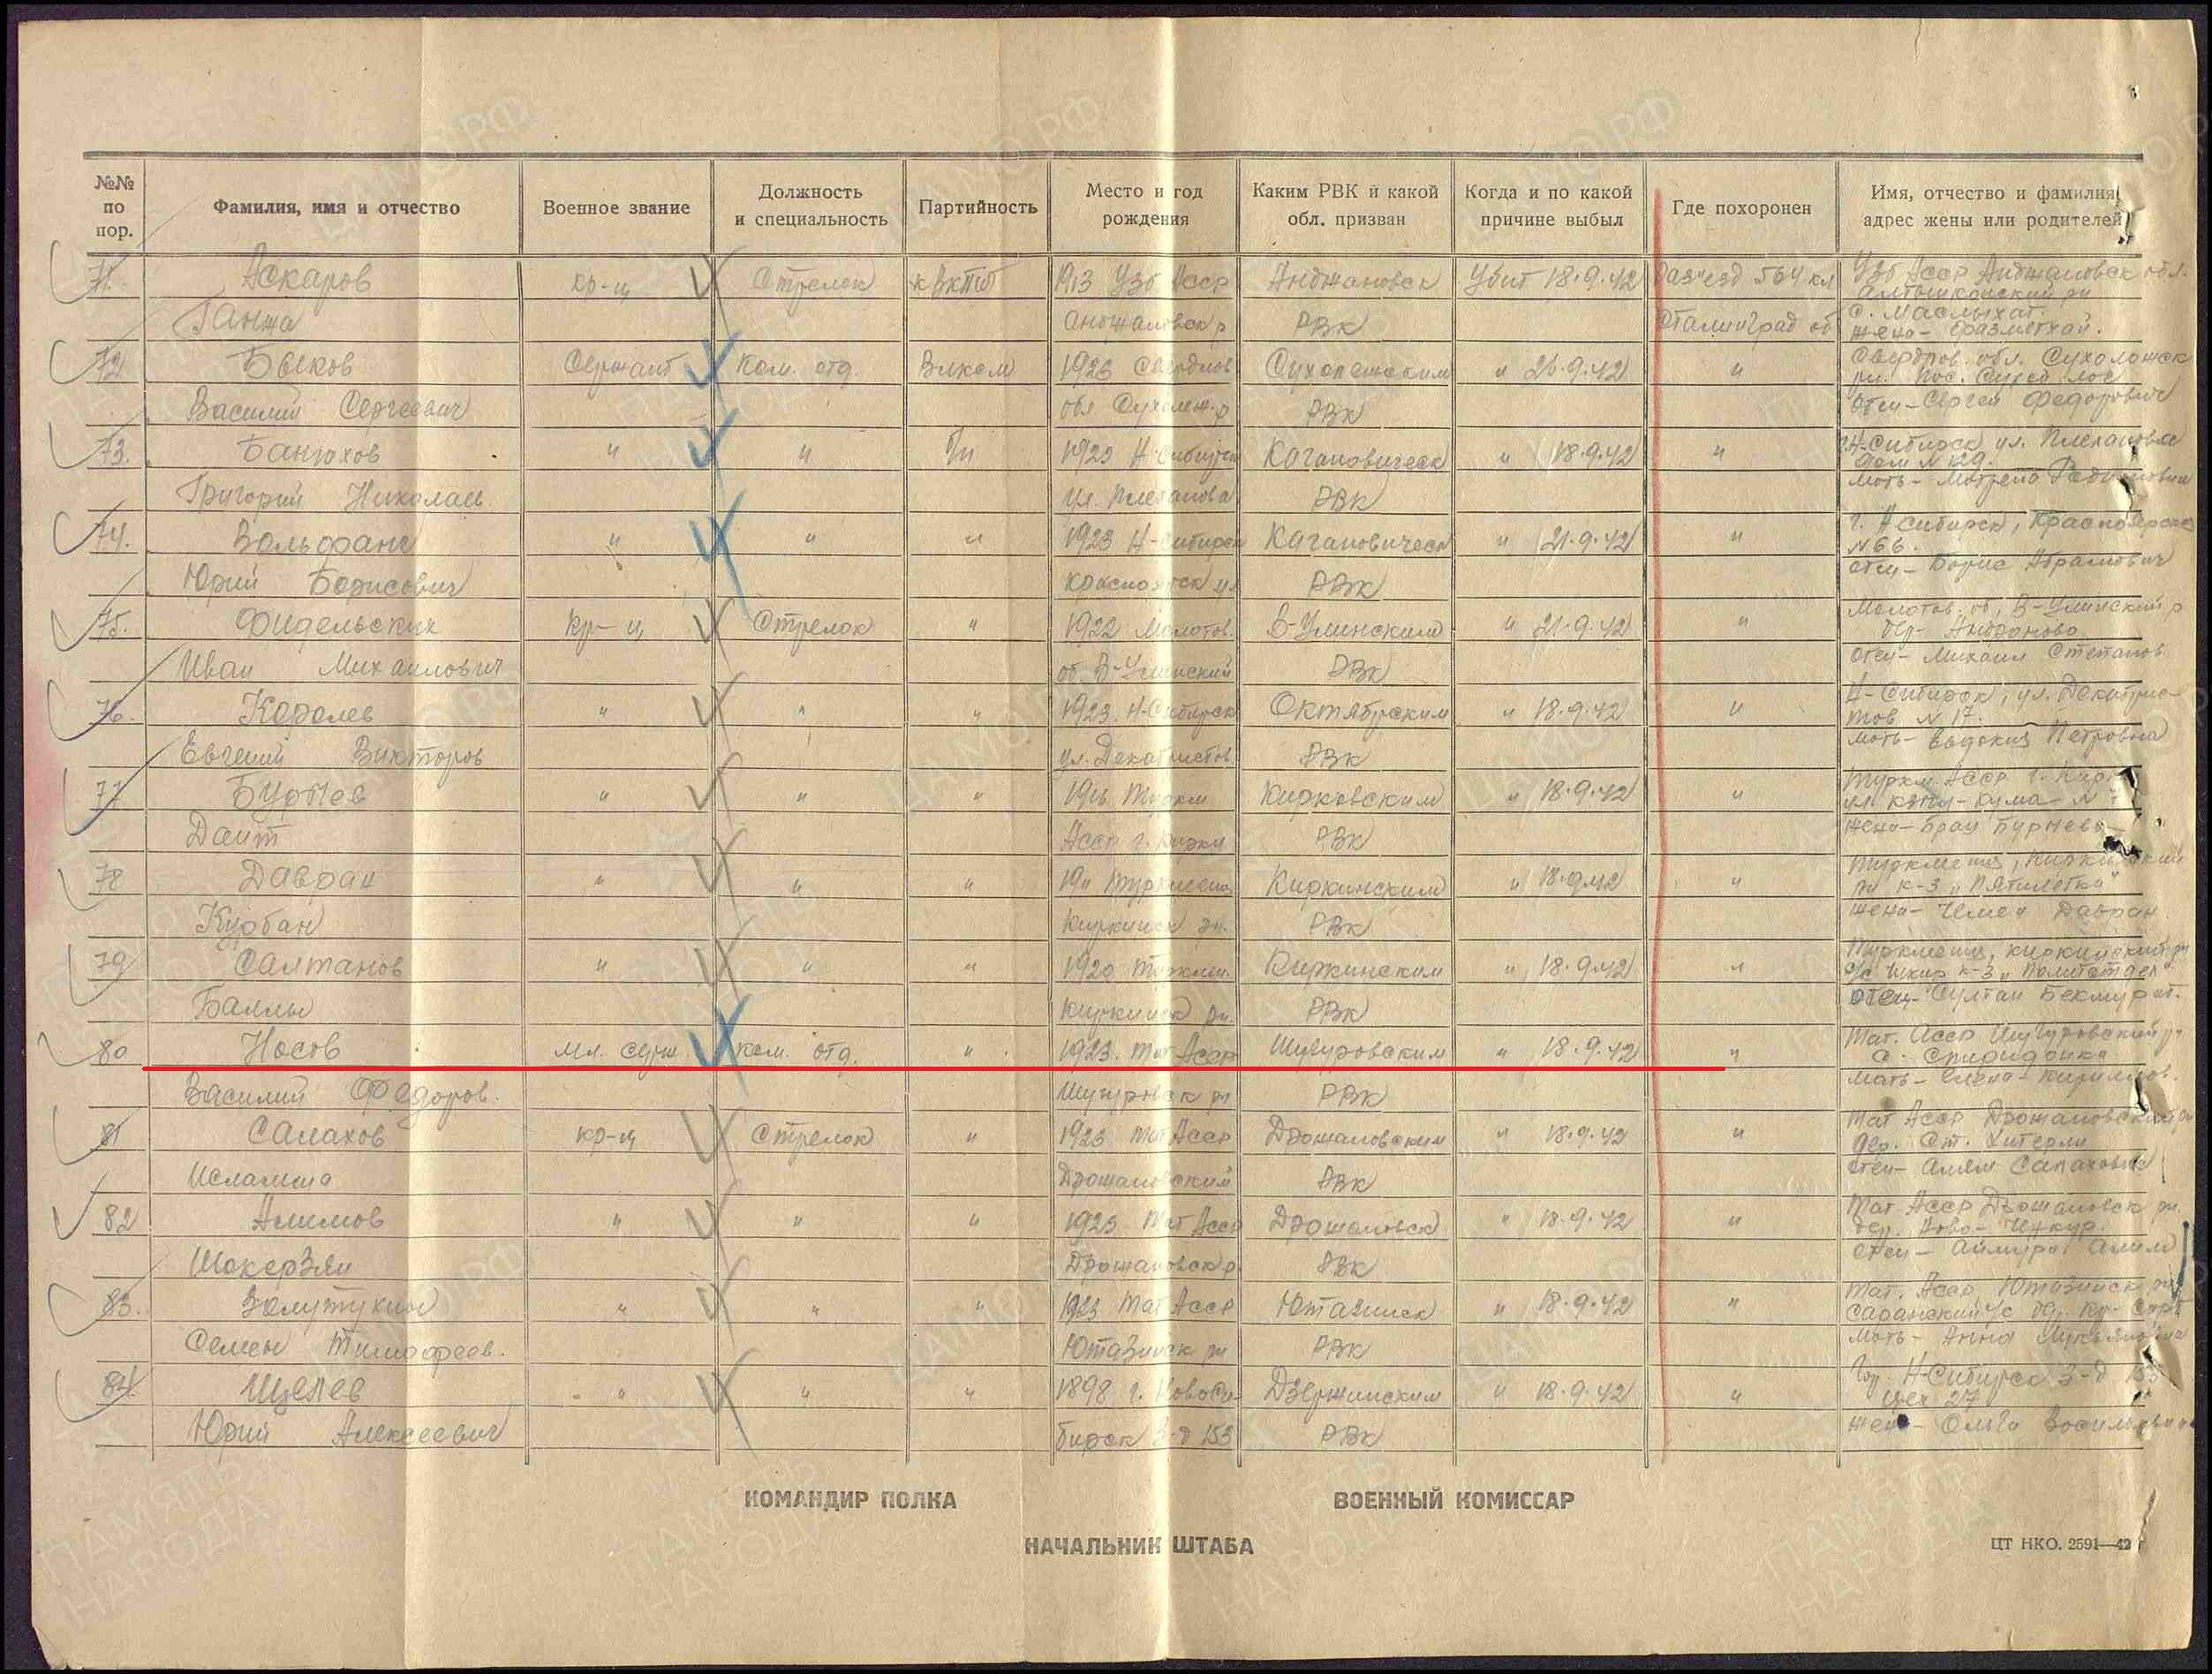 №№ по пор.
Фамилия, имя и отчество
Военное звание
Должность и специальность
Партийность
Место и год рождения
Каким РВК и какой обл. призван
Когда и по какой причине выбыл
Где похоронен
Имя, отчество и фамилия, адрес жены или родителей
71. Аскаров кр-ц Стрелок к ВКПб 1913 Узб Асср Анджановск Убит 18.9.42 Раз'езд 564 кл Узб Асср Анджановск обл.
Ганжа РВК Сталинград об жена-
72 Быков Сержант Ком. отд. Влксм 1923 Свердлов Сухоложским " 26.9.42 " Свердлов. обл. Сухоложск
Василий Сергеевич обл Сухолож. р РВК отец-Сергей Федорович
73. Банюхов " " б/п 1923 Н-Сибирск Кагановическ " 18.9.42 " Н-Сибирск ул. Плеханова дом № 129.
Григорий Николаев. ул. Плеханова РВК мать-
74. Вольфанг " " " 1923 Н-Сибирск Кагановическ " 21.9.42 " г. Нсибирск, Красноярская № 66.
Юрий Борисович Красноярск ул РВК отец- Борис Абрамович
75. Фидельских кр-ц Стрелок " 1922 Молотов. В-Улинским " 21-9.42 " Молотов. об, В-Улинский р дер- Андроново
Иван Михаилович об. В-Улинский РВК отец- Михаил Степанов.
76. Королев " " " 1923. Н-Сибирск Октябрьским " 18.9.42 " Н-Сибирск, ул. Декабристов № 17.
Евгений Викторов ул. Декабристов. РВК мать- Евдокия Петровна
77 Бурнев " " " Туркм Кирковским " 18.9.42 " Туркм. Асср г.
Даит Асср г. Кирки РВК жена-
78 Давран " " " 1911 Туркмения Киркинским " 18.9.42 " к-з "Пятилетка"
Курбан Киркинск рн. РВК жена- Давран
79 Салтанов " " " 1920 Туркмен. Киркинским " 18.9.42 " Туркмения, киркинский рн
Баллы Киркинск рн. РВК отец- Султан Бекмурат.
80 Носов мл. серж. ком. отд. " 1923. Тат Асср Шугуровским " 18.9.42 " Тат. Асср Шугуровский рн с. Спиридовка
Василий Федоров. Шугуровск рн РВК мать- Елена- Кириллов.
81 Салахов кр-ц Стрелок " 1923 Тат Асср Дрожановским " 18.9.42 " Тат Асср Дрожановский рн дер. Ст.
Дрожановский РВК отец- Салахович
82 Алимов " " " 1923. Тат Асср Дрожановск " 18.9.42 " Тат. Асср Дрожановск рн. дер. Ново-
Шакерзян Дрожановск р. РВК отец- Алим
83. Залутухин " " " 1923 Тат Асср Ютазинск " 18.9.42 " Тат. Асср, Ютазинск рн
Семен Тимофеев. Ютазинск рн РВК мать- Анна
84. Щепев " " " 1898 г. Новоси- Дзержинским " 18.9.42 " Гор. Н-Сибирск З-д 153 цех 27
Юрий Алексеевич бирск З-д 153 РВК жена- Ольга Васильевна
КОМАНДИР ПОЛКА
ВОЕННЫЙ КОМИССАР
НАЧАЛЬНИК ШТАБА
ЦТ НКО. 2591—42
ПАМЯТЬ НАРОДА
ЦАМО.РФ